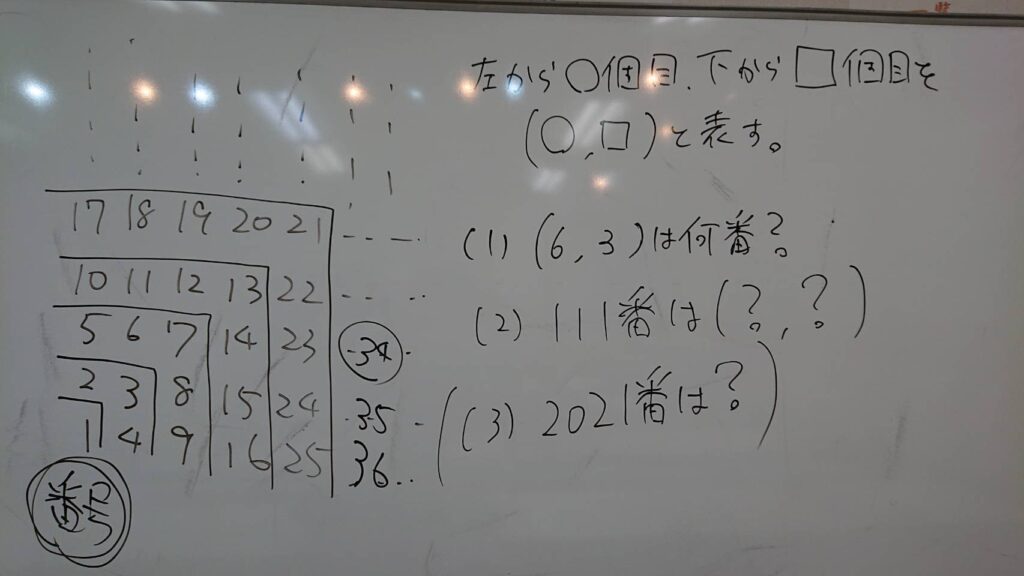 左から○個目、下から□個目を
(○,□)と表す。
17 18 19 20 21
10 11 12 13 22
5 6 7 14 23 34
2 3 8 15 24 35
1 4 9 16 25 36
(1) (6,3)は何番?
(2) 111番は(?,?)
((3) 2021番は?)